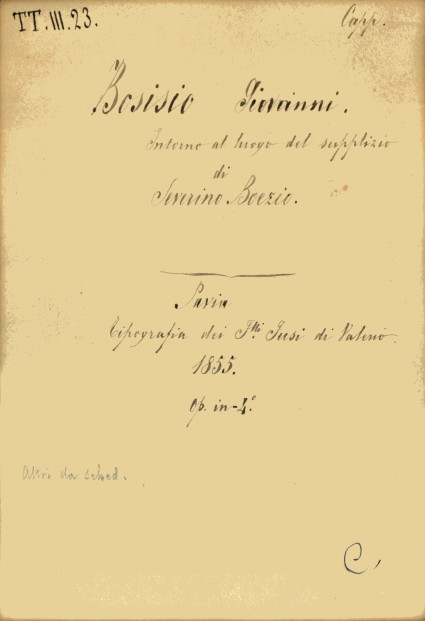 TT.III.23.
Capp.
Bosisio Giovanni.
Intorno al luogo del supplizio
di
Severino Boezio.
Pavia
Tipografia dei F.lli Fusi di Valenò.
1855.
Op. in-4°.
Altri da sched.
C,